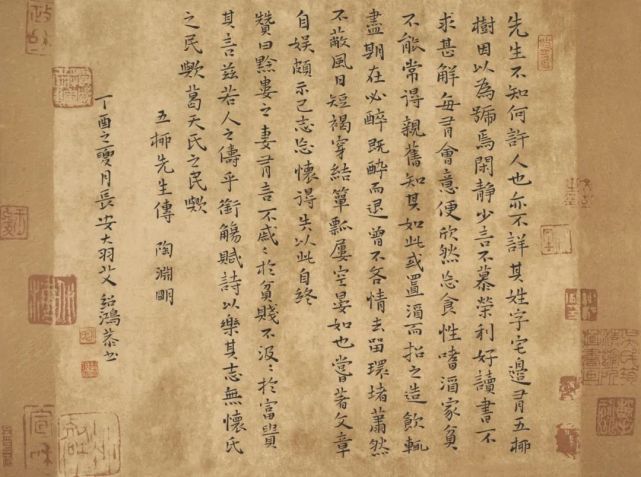 先生不知何許人也亦不詳其姓字宅邉有五柳
樹因以為號焉閑静少言不慕榮利好讀書不
求甚解每有會意便欣然忘食性嗜酒家貧
不能常得親舊知其如此或置酒而招之造飲輒
盡期在必醉既醉而退曾不吝情去留環堵蕭然
不蔽風日短褐穿結簞瓢屢空晏如也嘗著文章
自娱頗示己志忘懷得失以此自終
贊曰黔婁之妻有言不慼〻於貧賤不汲〻於富貴
其言茲若人之儔乎銜觴賦詩以樂其志無懷氏
之民歟葛天氏之民歟
五柳先生傳 陶淵明
丁酉之夏月長安大羽 鴻恭书